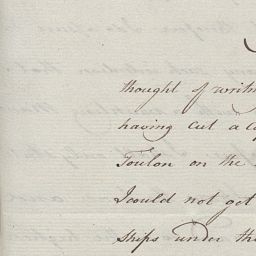 thought of writin
having cut a
Toulon on the
I could not get
ships under the